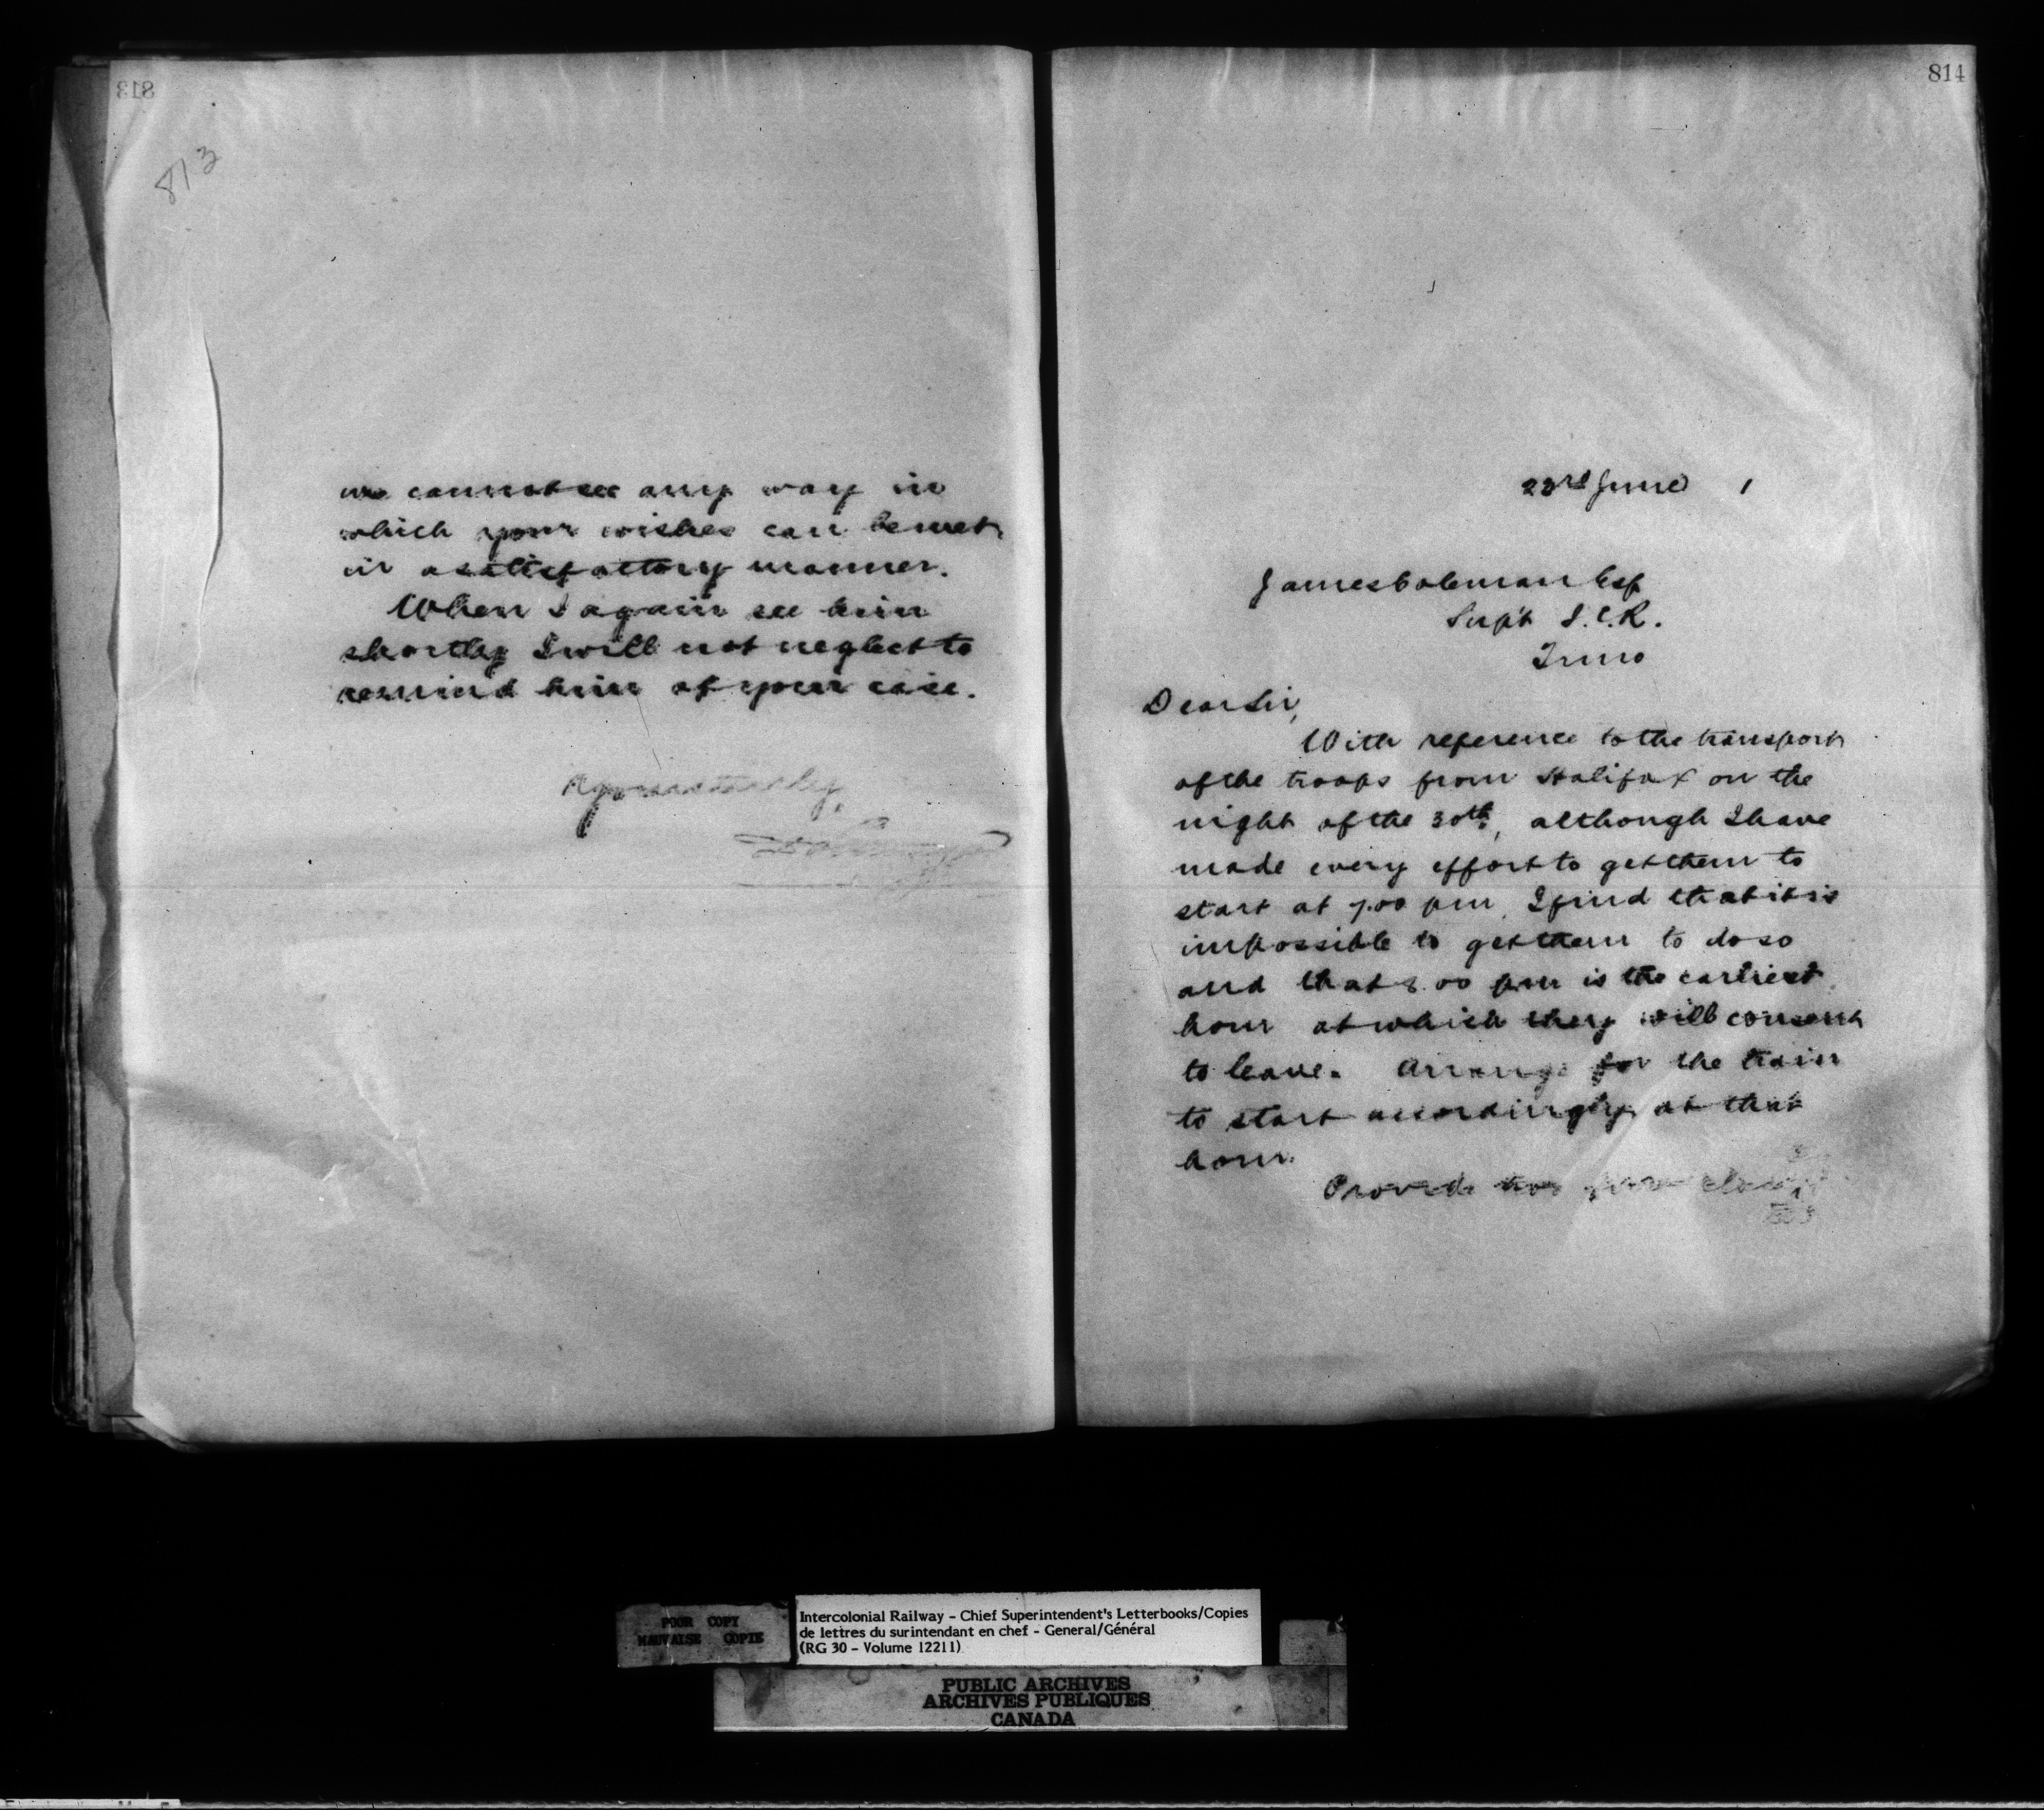 813
813
we cannot see any way in
which your wishes can be met
in a satisfactory manner.
When I again see him
shortly I will not neglect to
remind him of your case.
Yours truly,
814
23rd June 1
James Coleman Esq
Supt I.C.R.
Truro
Dear Sir,
With reference to the transport
of the troops from Halifax on the
night of the 30th, although I have
made every effort to get them to
start at 7.00 pm, I find that it is
impossible to get them to do so
and that 8.00 pm is the earliest
hour at which they will consent
to leave. Arrange for the train
to start accordingly at that
hour.
Provide two first class
POOR COPY
MAUVAISE COPIE
Intercolonial Railway - Chief Superintendent's Letterbooks/Copies
de lettres du surintendant en chef - General/Général
(RG 30 - Volume 12211)
PUBLIC ARCHIVES
ARCHIVES PUBLIQUES
CANADA